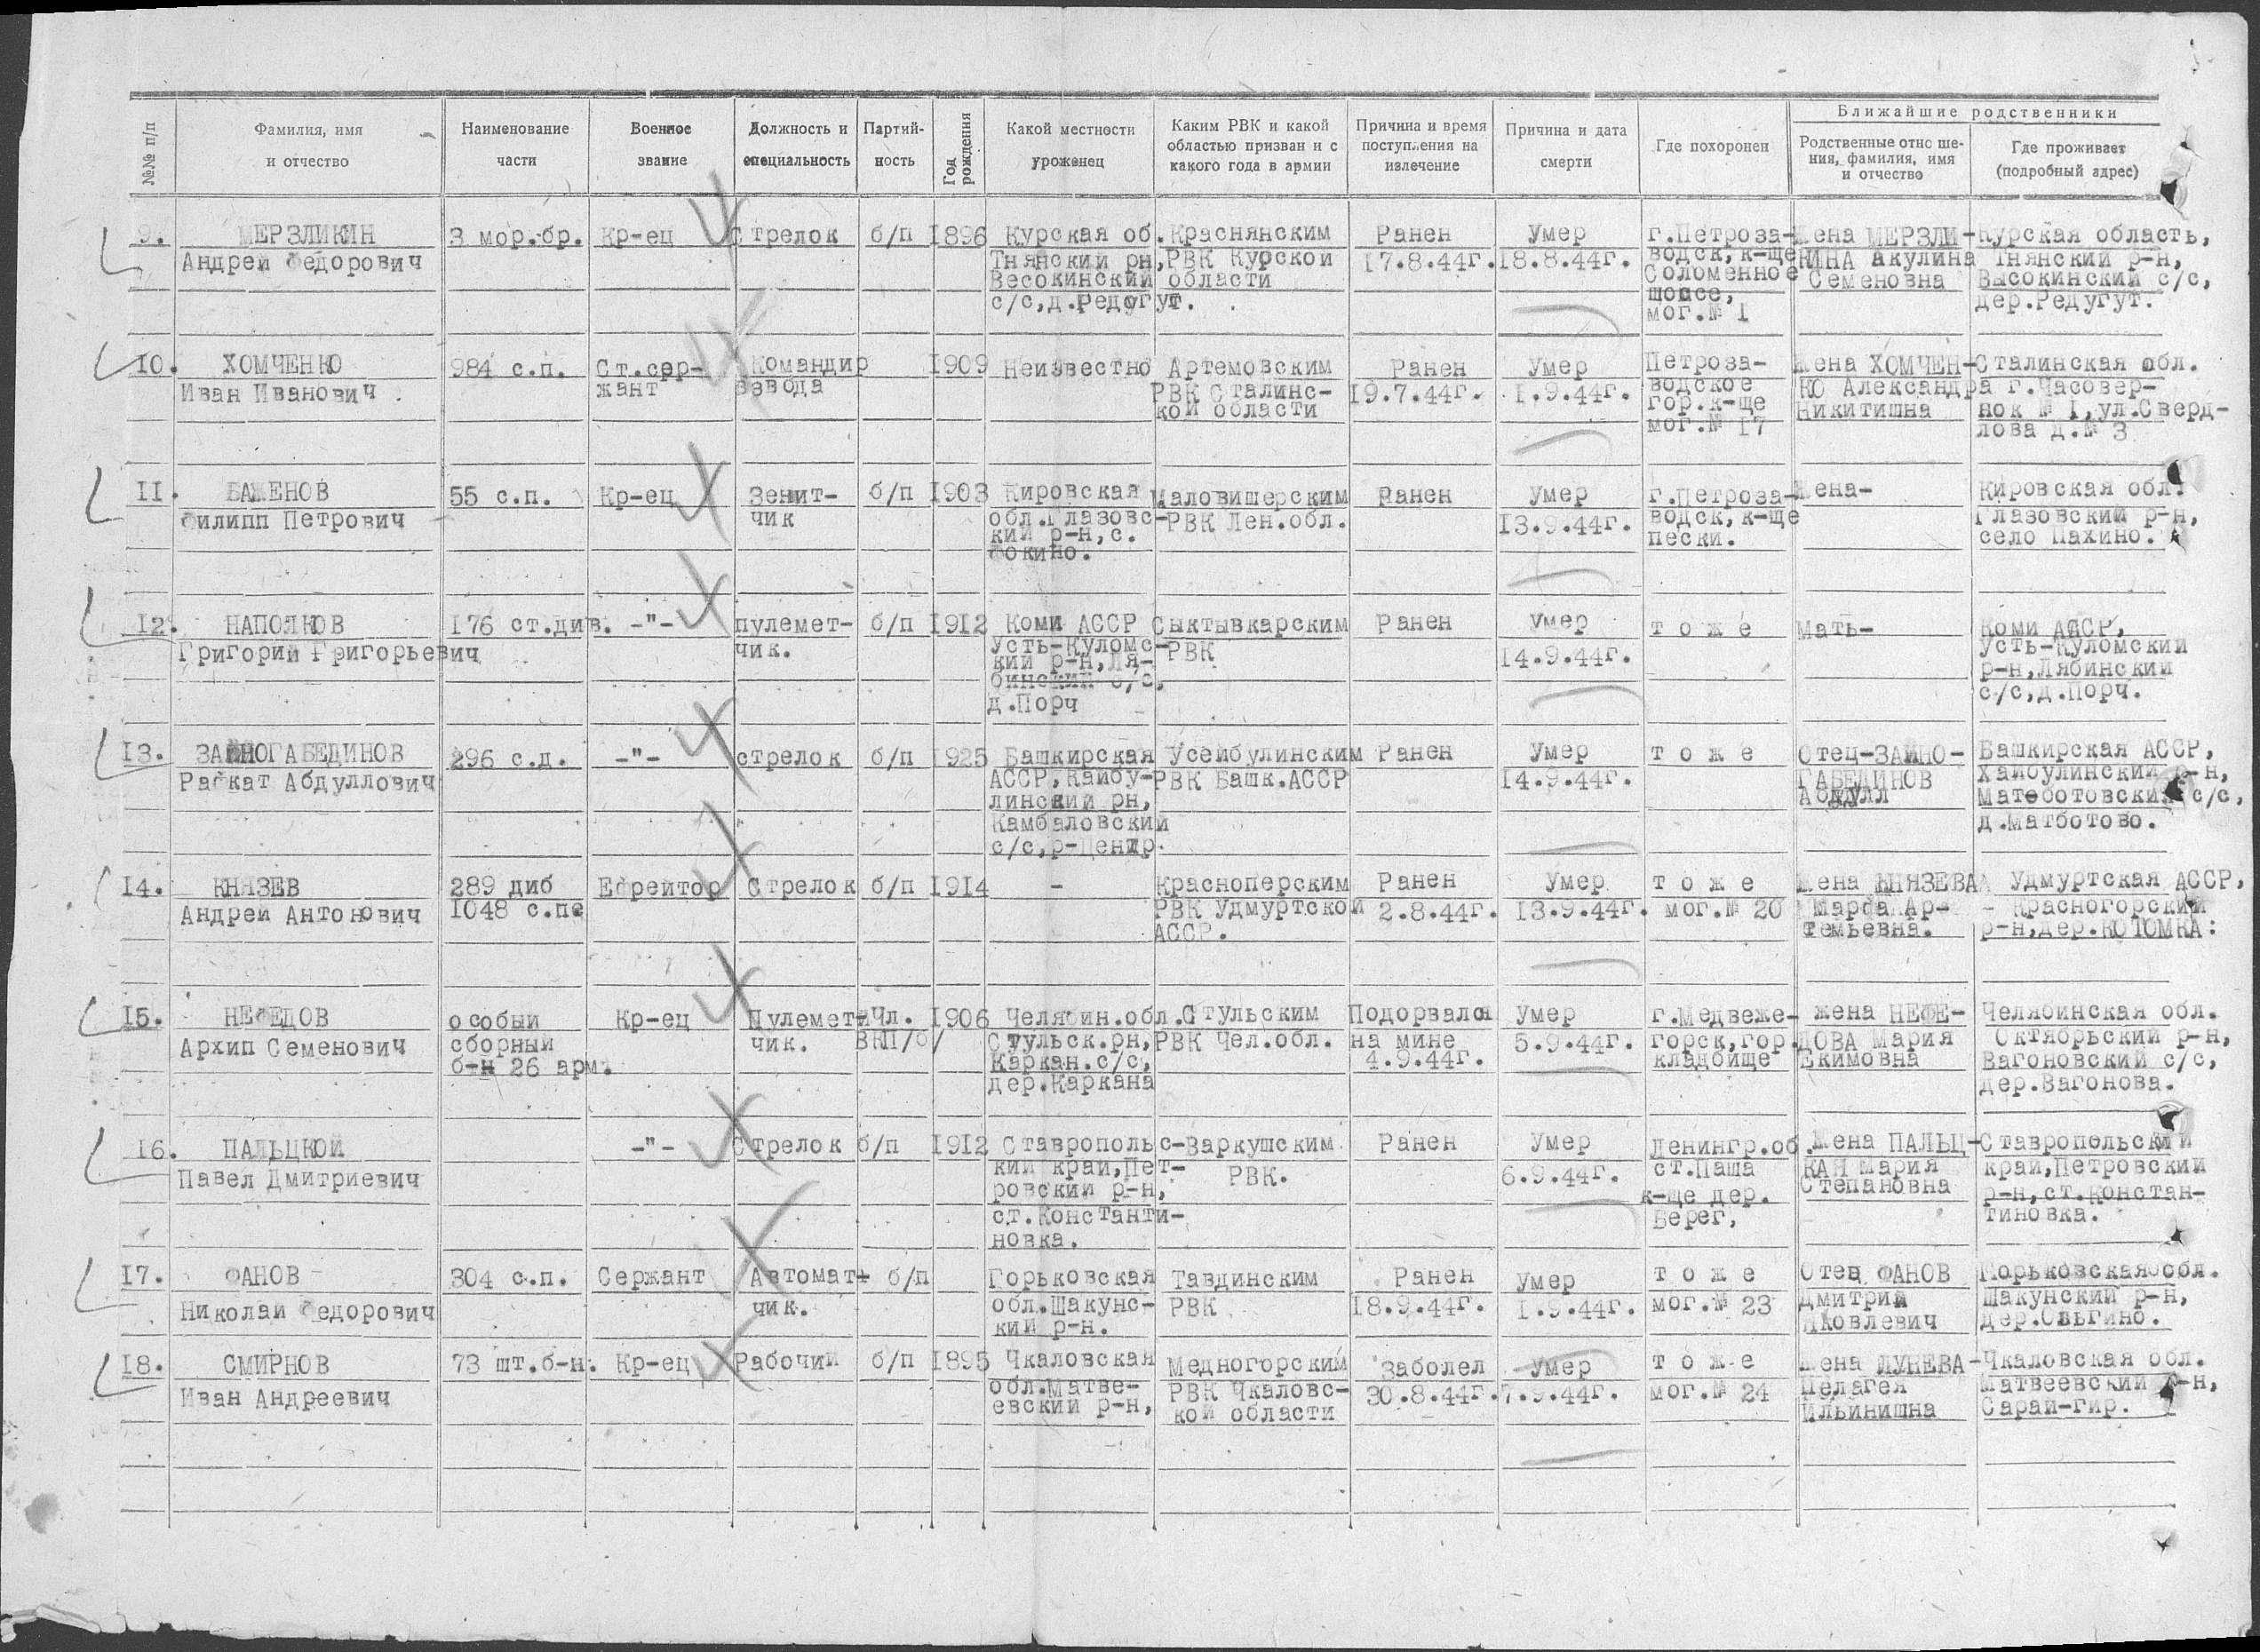 №№ п/п
Фамилия, имя
и отчество
Наименование
части
Военное
звание
Должность и
специальность
Партий-
ность
Год
рождения
Какой местности
уроженец
Каким РВК и какой
областью призван и с
какого года в армии
Причина и время
поступления на
излечение
Причина и дата
смерти
Где похоронен
Ближайшие родственники
Родственные отно ше-
ния, фамилия, имя
и отчество
Где проживает
(подробный адрес)
9.
МЕРЗЛИКИН
Андрей Федорович
3 мор.бр.
Кр-ец
Стрелок
б/п
1896
Курская об.
Тнянский рн,
Весокинский
с/с,д.Редогут.
Краснянским
РВК Курской
области
Ранен
17.8.44г.
Умер
18.8.44г.
г.Петроза-
водск,к-ще
Соломенное
шоссе,
мог.№ 1
Жена МЕРЗЛИ-
КИНА Акулина
Семеновна
Курская область,
Тнянский р-н,
Высокинский с/с,
дер.Редугут.
10.
ХОМЧЕНКО
Иван Иванович
984 с.п.
Ст.сер-
жант
Командир
взвода
1909
Неизвестно
Артемовским
РВК Сталинс-
кой области
Ранен
19.7.44г.
Умер
1.9.44г.
Петроза-
водское
гор.к-ще
мог.№ 17
Жена ХОМЧЕН-
КО Александра
Никитишна
Сталинская обл.
г.Часовер-
нок № 1,ул.Сверд-
лова д.№ 3
11.
БАЖЕНОВ
Филипп Петрович
55 с.п.
Кр-ец
Зенит-
чик
б/п
1903
Кировская
обл.Глазовс-
кий р-н,с.
Фокино.
Маловишерским
РВК Лен.обл.
Ранен
Умер
13.9.44г.
г.Петроза-
водск,к-ще
пески.
Жена-
Кировская обл.
Глазовский р-н,
село Пахино.
12.
НАПОЛКОВ
Григорий Григорьевич
176 ст.див.
-"-
пулемет-
чик.
б/п
1912
Коми АССР
Усть-Куломс-
кий р-н,Ля-
бинский с/с,
д.Порч
Сыктывкарским
РВК
Ранен
Умер
14.9.44г.
т о ж е
Мать-
Коми АССР,
Усть-Куломский
р-н,Лябинский
с/с,д.Порч.
13.
ЗАЙНОГАБЕДИНОВ
Рафкат Абдуллович
296 с.д.
-"-
стрелок
б/п
1925
Башкирская
АССР,Кайбу-
линский рн,
Камбаловский
с/с,р-Центр.
Усейбулинским
РВК Башк.АССР
Ранен
Умер
14.9.44г.
т о ж е
Отец-ЗАЙНО-
ГАБЕДИНОВ
Абдулл
Башкирская АССР,
Хайбулинский р-н,
Матеботовский с/с,
д.Матботово.
14.
КНЯЗЕВ
Андрей Антонович
289 див
1048 с.пе
Ефрейтор
Стрелок
б/п
1914
-
Красноперским
РВК Удмуртской
АССР.
Ранен
2.8.44г.
Умер
13.9.44г.
т о ж е
мог.№ 20
Жена КНЯЗЕВА
Марфа Ар-
темьевна.
Удмуртская АССР,
- Красногорский
р-н,дер.КОТОМКА:
15.
НЕФЕДОВ
Архип Семенович
особый
сборный
б-н 26 арм.
Кр-ец
Пулемет-
чик.
Чл.
ВКП/б/
1906
Челябин.обл.
Стульск.рн,
Каркан.с/с,
дер.Каркана
Стульским
РВК Чел.обл.
Подорвался
на мине
4.9.44г.
Умер
5.9.44г.
г.Медвеже-
горск,гор.
кладбище
жена НЕФЕ-
ДОВА Мария
Екимовна
Челябинская обл.
Октябрьский р-н,
Вагоновский с/с,
дер.Вагонова.
16.
ПАЛЬЦКОЙ
Павел Дмитриевич
-"-
Стрелок
б/п
1912
Ставропольс-
кий край,Пет-
ровский р-н,
ст.Константи-
новка.
Варкушским
РВК.
Ранен
Умер
6.9.44г.
Ленингр.об.
ст.Паша
к-ще дер.
Берег,
Жена ПАЛЬЦ-
КАЯ Мария
Степановна
Ставропольский
край,Петровский
р-н,ст.Констан-
тиновка.
17.
ФАНОВ
Николай Федорович
304 с.п.
Сержант
Автомат-
чик.
б/п
Горьковская
обл.Шакунс-
кий р-н.
Тавдинским
РВК
Ранен
18.9.44г.
Умер
1.9.44г.
т о ж е
мог.№ 23
Отец ФАНОВ
Дмитрий
Яковлевич
Горьковская обл.
Шакунский р-н,
дер.
18.
СМИРНОВ
Иван Андреевич
73 шт.б-н.
Кр-ец
Рабочий
б/п
1895
Чкаловская
обл.Матве-
евский р-н,
Медногорским
РВК Чкаловс-
кой области
Заболел
30.8.44г.
Умер
7.9.44г.
т о ж е
мог.№ 24
Жена ЛУНЕВА
Пелагея
Ильинишна
Чкаловская обл.
Матвеевский р-н,
Сарай-гир.